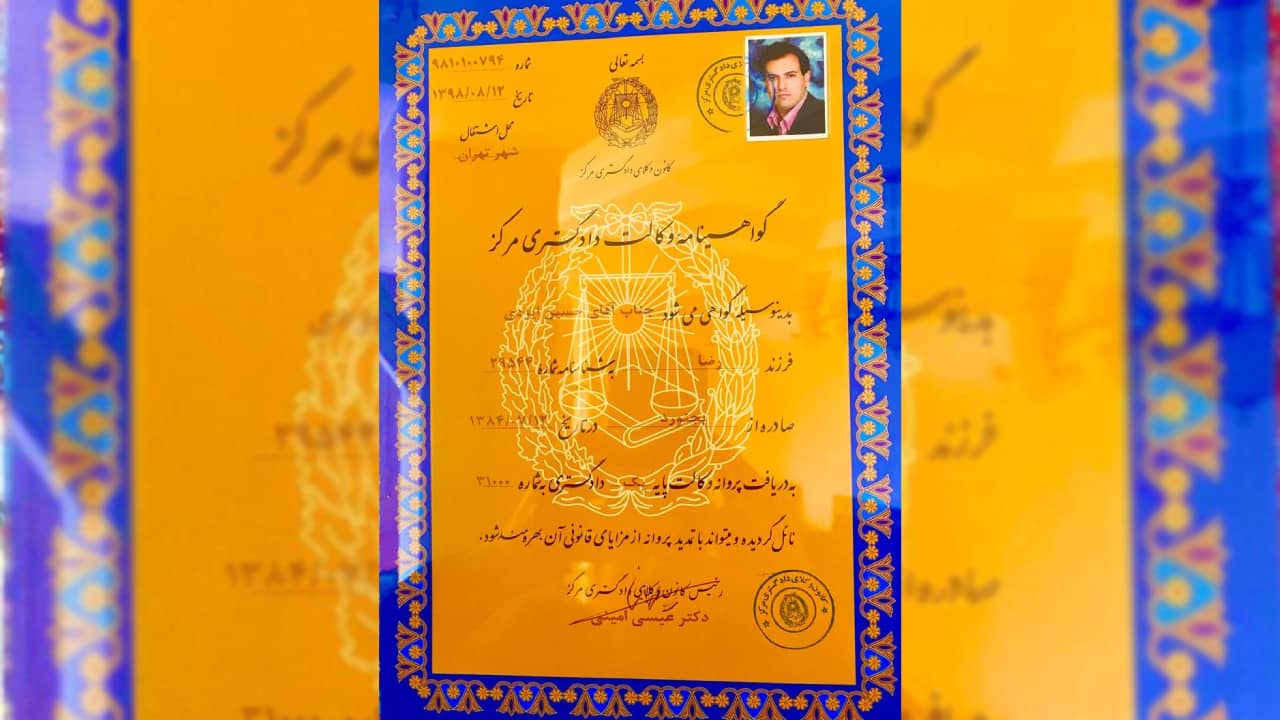 بسمه تعالی
شماره ۹۸۱۰۱۰۰۷۹۴
تاریخ ۱۳۹۸/۰۸/۱۲
محل اشتغال
شهر تهران
کانون وکلای دادگستری مرکز
گواهینامه وکالت دادگستری مرکز
بدینوسیله گواهی می شود جناب آقای حسین
فرزند رضا به شناسنامه شماره ۲۹۵۴۴
صادره از بجنورد در تاریخ ۱۳۸۴/۰۷/۱۲
به دریافت پروانه وکالت پایه یک دادگستری به شماره ۳۱۰۰۰
نائل گردیده و میتواند با تمدید پروانه از مزایای قانونی آن بهره مند شود.
رئیس کانون وکلای دادگستری مرکز
دکتر عیسی امینی
کانون وکلای دادگستری مرکز